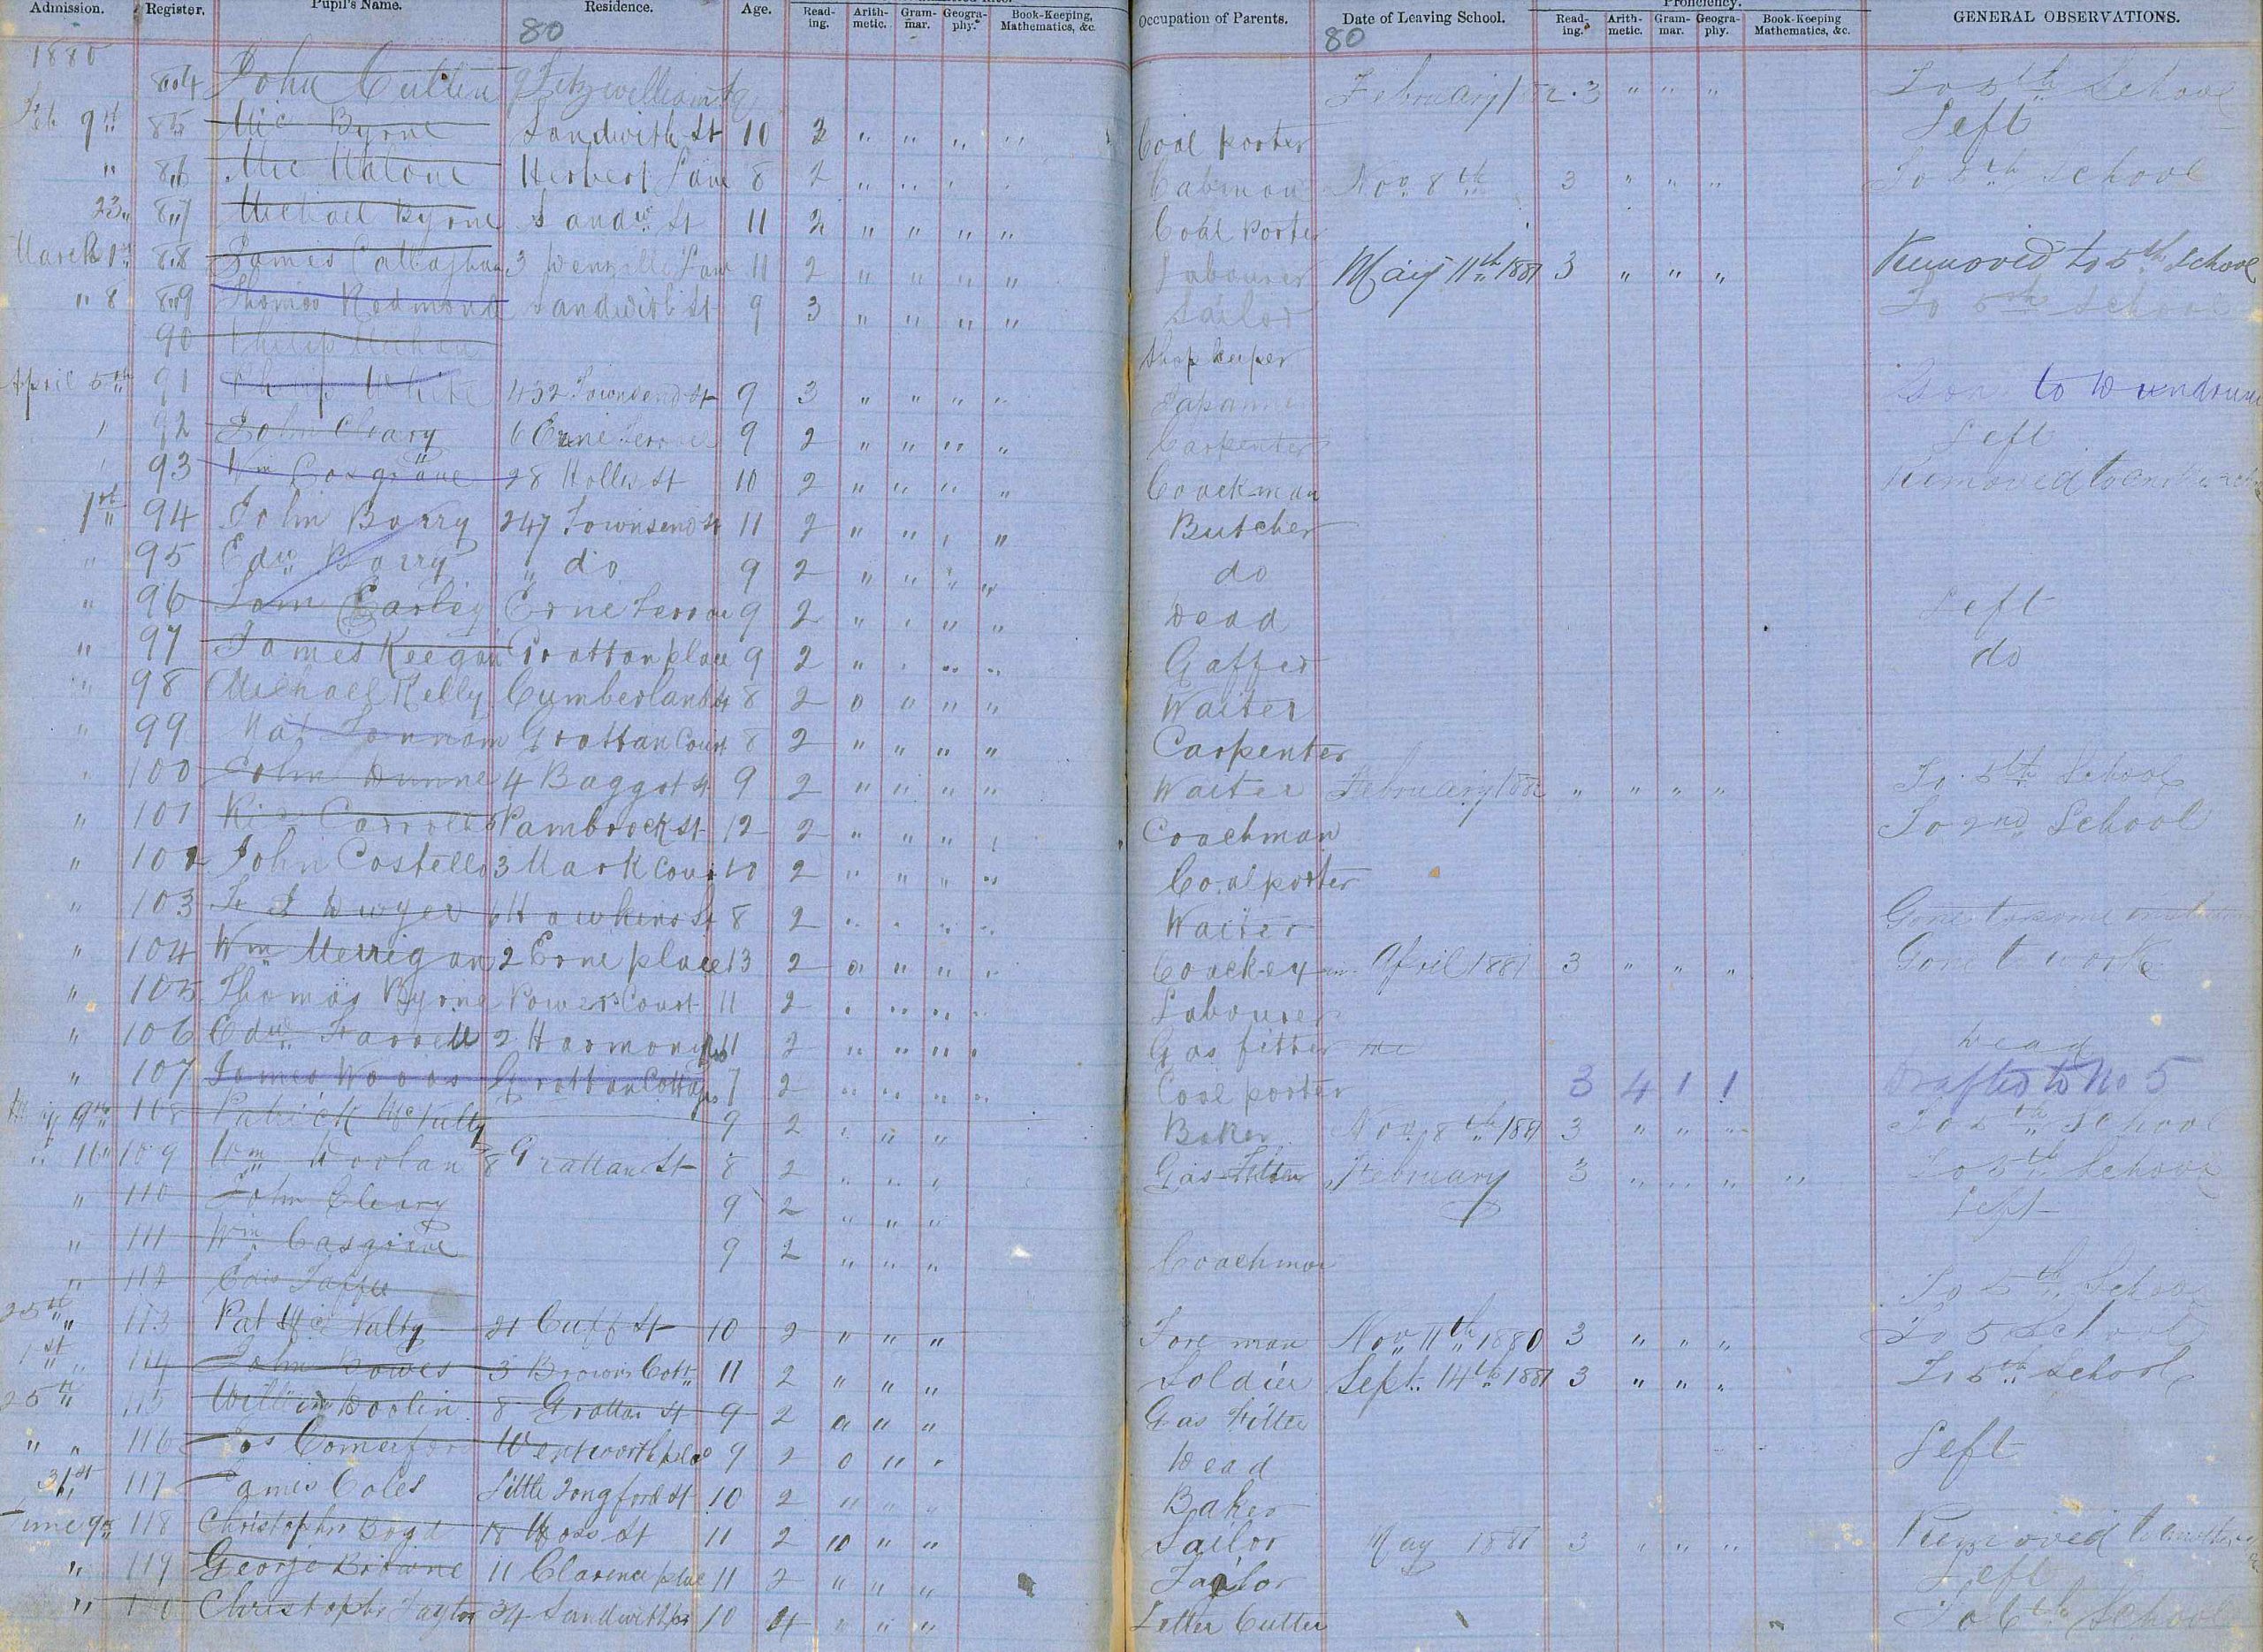 Admission. Register. Pupil's Name. Residence. Age. Read-ing. Arith-metic. Gram-mar. Geogra-phy. Book-Keeping, Mathematics, &c. Occupation of Parents. Date of Leaving School. Proficiency. Read-ing. Arith-metic. Gram-mar. Geogra-phy. Book-Keeping Mathematics, &c. GENERAL OBSERVATIONS.
1880 80 80
John Cullen Fitzwilliam February 3 " " " To 5th School
Feb 9th 85 Mic Byrne Sandwith St 10 2 " " " " Coal porter Left
" 86 Mic Malone Herbert Lane 8 2 " " " " Cabman Nov. 8th 3 " " " To 5th School
23 " 87 Michael Byrne Sandw. St 11 2 " " " " Coal Porter
March 1st 88 James Callaghan 3 Lane 11 2 " " " " Labourer May 11th 1881 3 " " " Removed to 5th School
" 8 89 Thomas Redmond Sandwith St 9 3 " " " " Sailor To 5th School
90 Philip Meehan Shop keeper
April 5th 91 Philip White 432 Townsend St 9 3 " " " " to Dundrum
" 92 John Cleary 6 Erne Terrace 9 2 " " " " Carpenter Left
" 93 Wm Cosgrave 28 Holles St 10 2 " " " " Coachman Removed to
1st 94 John Barry 247 Townsend St 11 2 " " " " Butcher
" 95 Edw. Barry " do 9 2 " " " " do
" 96 Tom Earley Erne Terrace 9 2 " " " " Dead Left
" 97 James Keegan Grattan place 9 2 " " " " Gaffer do
" 98 Michael Kelly Cumberland St 8 2 0 " " " Waiter
" 99 Grattan Court 8 2 " " " " Carpenter
" 100 John Dunne 4 Baggot St 9 2 " " " " Waiter February 1882 " " " " To 5th School
" 101 Carroll Pambrock St 12 2 " " " " Coachman To 2nd School
" 102 John Costello 3 Mark Court 10 2 " " " " Coal porter
" 103 Dwyer 6 Hawkins St 8 2 " " " " Waiter Gone to some
" 104 Wm Merrigan 2 Erne place 13 2 " " " " April 1881 3 " " " Gone to work
" 105 Thomas Byrne Powers Court 11 2 " " " " Labourer
" 106 Edw. Farrell 2 Harmony 11 2 " " " " Gas fitter Dead
" 107 James Woods Grattan Cottages 7 2 " " " " Coal porter 3 4 1 1 Drafted to No 5
May 9th 108 Patrick McNulty 9 2 " " " Baker Nov. 8th 1881 3 " " " To 5th School
" 16th 109 Wm Doolan 8 Grattan St 8 2 " " " Gas Fitter February 3 " " " " To 5th School
" 110 John Cleary 9 2 " " " Left
" 111 Wm Casgrave 9 2 " " " Coachman
" 112 To 5th School
25th " 113 Pat McNulty 21 Cuff St 10 2 " " " Fore man Nov. 11th 1880 3 " " " To 5 School
1st " 114 John Bowes 3 Browns Cott. 11 2 " " " Soldier Sept. 14th 1881 3 " " " To 5th School
25th " 115 William Doolin 8 Grattan St 9 2 " " " Gas Fitter
" " 116 Jos Comerford Wentworth place 9 2 0 " " Dead Left
31st " 117 James Coles Little Longford St 10 2 " " " Baker
June 9th 118 Christopher Boyd 18 Moss St 11 2 " " " Sailor May 1881 3 " " " Removed to another
" 119 George Browne 11 Clarence place 11 2 " " " Tailor Left
" Christopher Taylor 34 Sandwith St 10 4 " " " Letter Cutter To 6th School